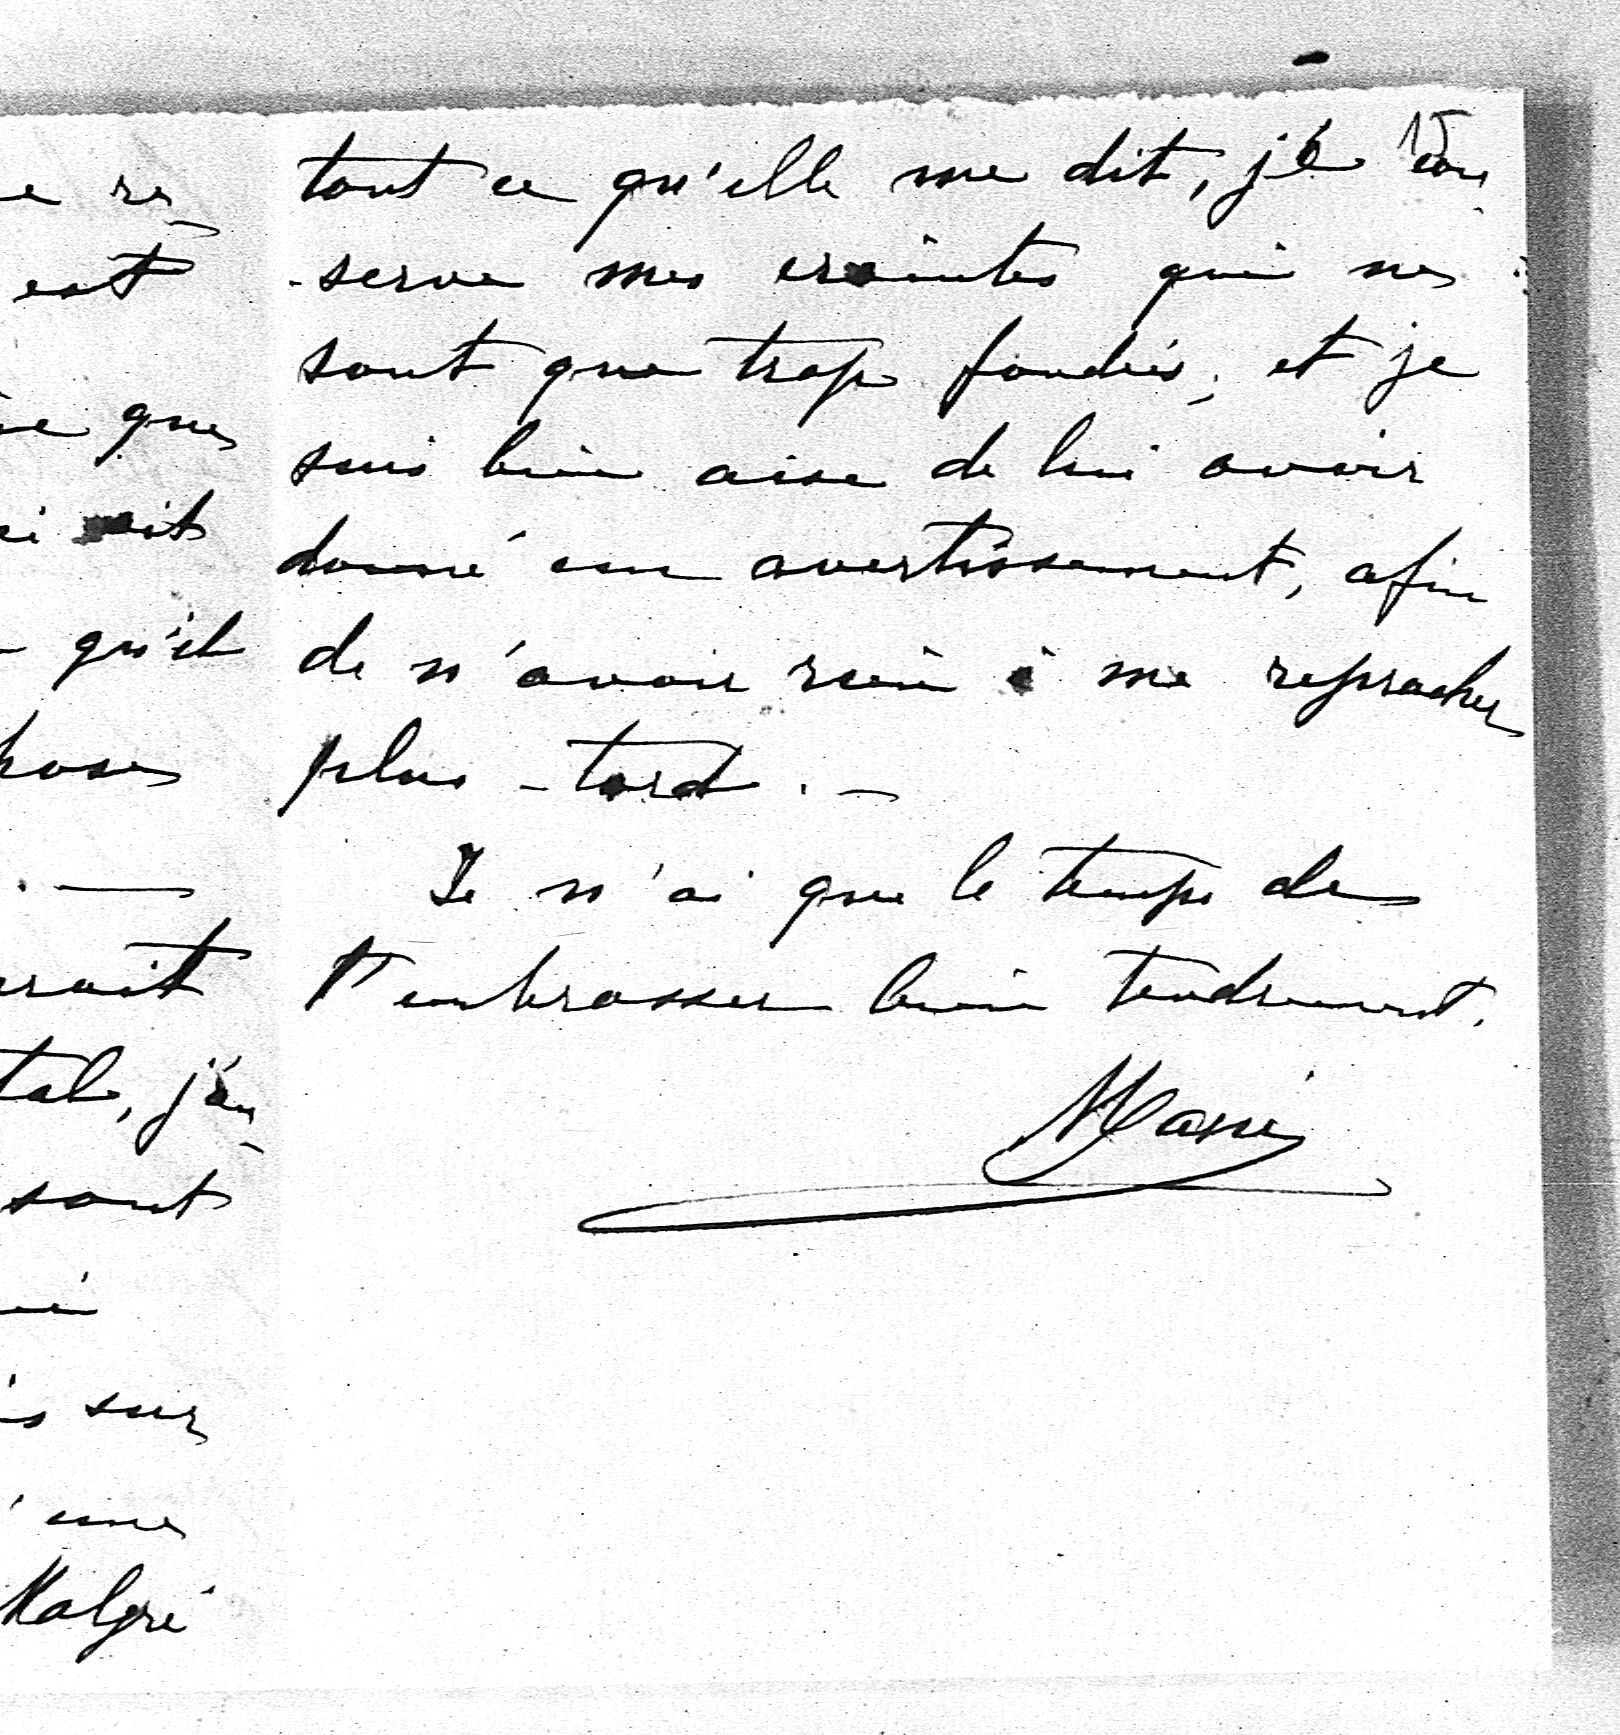 e re-
est
ve que
i soit
qu'il
hoses
.—
rait
tal, j'en-
sont
é
is sur
' une
Malgré
15
tout ce qu'elle me dit, je con
-serve mes craintes qui ne
sont que trop fondées, et je
suis bien aise de lui avoir
donné un avertissement, afin
de n'avoir rien à me reprocher
plus-tard.—
Je n'ai que le temps de
t'embrasser bien tendrement.